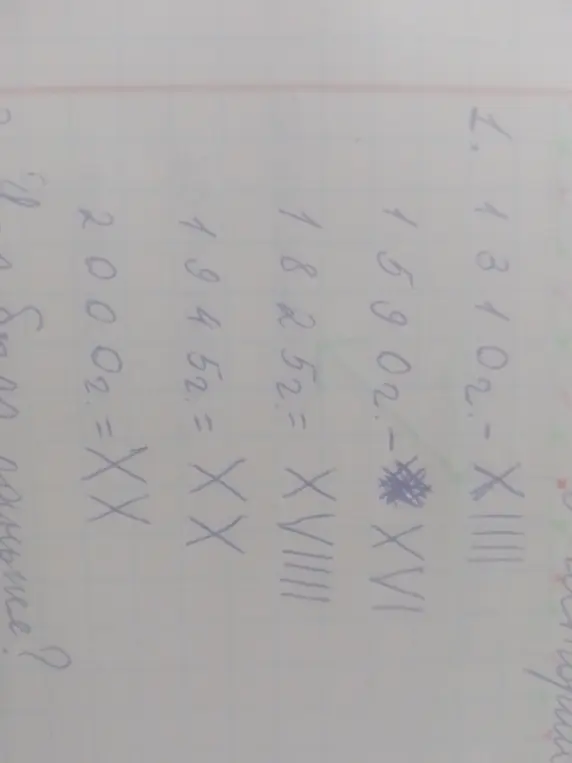 истории
1. 1310г. - XIIII
1590г. - XVI
1825г. = XVIIII
1945г. = XX
2000г. = XX
раньше?